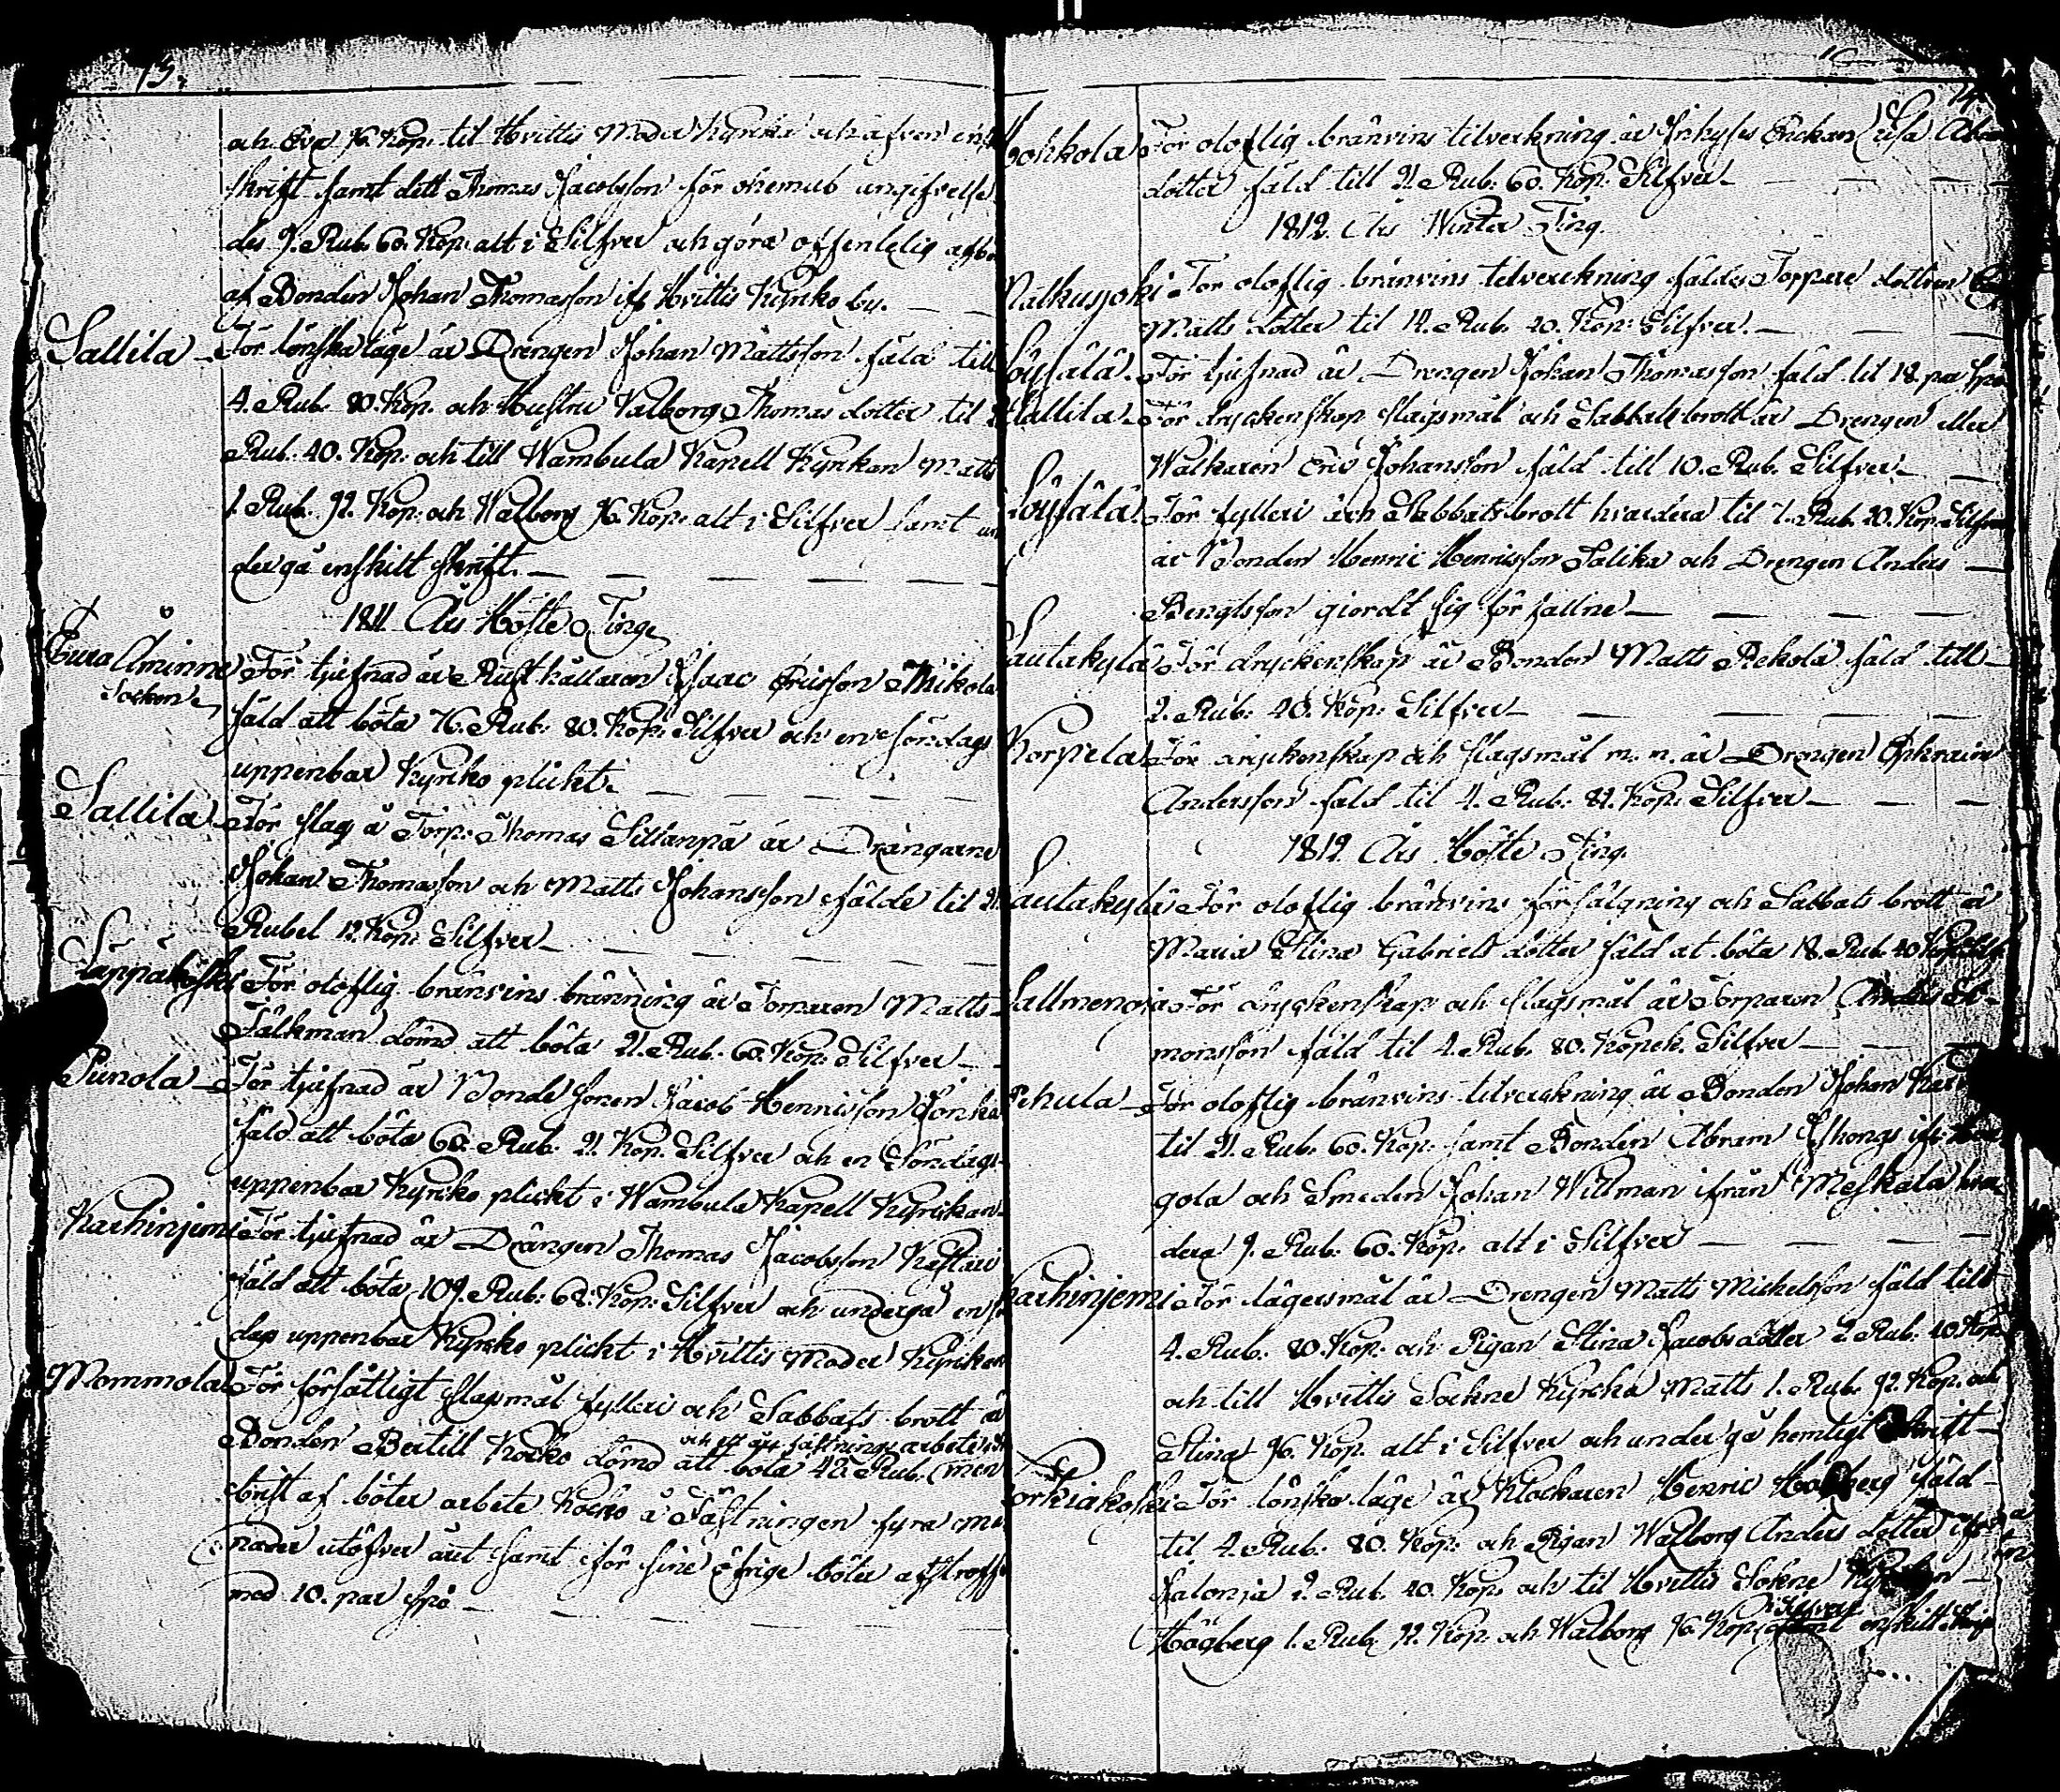 13.
och Eva 96. Kop. til Hvittis Moder Kyrka och äfven enskilt
skrift samt dett Thomas Jacobsson för okemub angifvelse
des 9. Rub. 60. Kop. alt i Silfver och göra offentelig afbön
af Bonden Johan Thomasson ifr Hvittis Kyrko by.
Sallila För lönskaläge är Drengen Johan Mattsson fäld till
4. Rub. 80. Kop. och Hustru Valborg Thomas dotter til 2
Rub. 40. Kop. och till Wambula Kapell Kyrkan Matts
1. Rub. 92. Kop. och Walborg 96. Kop. alt i Silfver samt un
dergå enskilt skrift.
1811 Års Höste Ting
Eura Åminne Socken För tjufnad är Rusthållaren Isaac Ericsson Mikola
fäld att böta 76. Rub. 80. Kop. Silfver och en söndags
uppenbar Kyrko plickt.
Sallila För slag å Torp. Thomas Sillanpä är Drängarne
Johan Thomasson och Matts Johansson fälde til 21
Rubel 12. Kop. Silfver
Säppäkoski För oloflig bränvins bränning är Torparen Matts
Fälkman dömd att böta 21. Rub. 60. Kop. Silfver
Punola För tjufnad är Bonde Sonen Jacob Hennisson Jonka
fäld att böta 60. Rub. 21. Kop. Silfver och en Söndags
uppenbar Kyrko plickt i Wambula Kapell Kyrckan
Karhinjemi För tjufnad är Drängen Thomas Jacobsson Kestari
fäld att böta 109. Rub. 68. Kop. Silfver och undergå en sön
dag uppenbar Kyrcko plickt i Hvittis Moder Kyrckan
Mommola För försåtligt slagsmål fylleri och Sabbats brott är
och ett års fästnings arbete
Bonden Bertill Kocko dömd att böta 48. Rub. men
brist af böter arbete Kocko å Fästningen fyra må
nader utöfver året samt för sine öfrige böter afstraffas
med 10. par spö
14
Lohkola För oloflig bränvins tilverkning är Inhyses Enckan Lisa Abra
dotter fäld till 21. Rub. 60. Kop. Silfver
1812. Års Winter Ting.
Matkusjoki För oloflig bränvins tilverckning fäldes Toppare dottren
Matts dotter til 14. Rub. 40. Kop. Silfver.
Löysälä. För tjufnad är Drengen Johan Thomasson fäld til 18. par spö
Sallila För dryckenskap slagsmål och Sabbats brott är Drengen eller
Walkaren Eric Johansson fäld till 10. Rub. Silfver
Löysälä. För fylleri och Sabbats brott hvardera til 7. Rub. 20. Kop. Silfver
är Bonden Henric Hennisson Salika och Drengen Anders
Bengtsson giordt sig för fallne
Lautakylä För dryckenskap är Bonden Matts Rekola fäld till
2. Rub. 40. Kop. Silfver
Korpela För dryckenskap och slagsmål m. m. är Drengen Ephraim
Andersson fäld til 4. Rub. 81. Kop. Silfver
1812. Års Höste Ting.
Lautakylä För oloflig bränvins försälgning och Sabbats brott är
Maria Stina Gabriels dotter fäld at böta 18. Rub. 40 Kop. Silf
Sallmenoja För dryckenskap och slagsmål är Torparen Anders Si
monsson fäld til 4. Rub. 80. Kopek. Silfver
Pehula För oloflig bränvins tilverckning är Bonden Johan
til 21. Rub. 60. Kop. samt Bonden Abram Skongs ifr.
gola och Smeden Johan Willman ifrån Meskala hva
dera 9. Rub. 60. Kop. alt i Silfver
Karhinjemi För lägersmål är Drengen Matts Michelsson fäld till
4. Rub. 80. Kop. och Pigan Stina Jacobs dotter 2. Rub. 40 Kop.
och till Hvittis Sockne Kyrcka Matts 1. Rub. 92. Kop. och
Stina 96. Kop. alt i Silfver och undergå hemligt Skrift
Korkiakoski För lönska läge är Klockaren Henric Hogberg fäld
til 4. Rub. 80. Kop. och Pigan Walborg Anders dotter ifrån
Salonja 2. Rub. 40. Kop. och til Hvittis Sokne Kyrckan
Silfver
Högberg 1. Rub. 92. Kop. och Walborg 96. Kop. samt enskilt skrift